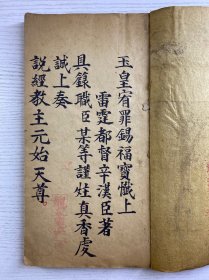 玉皇宥罪錫福寶懺上
雷霆都督辛漢臣著
具籙職臣某等謹炷真香虔
誠上奏
說經教主元始天尊